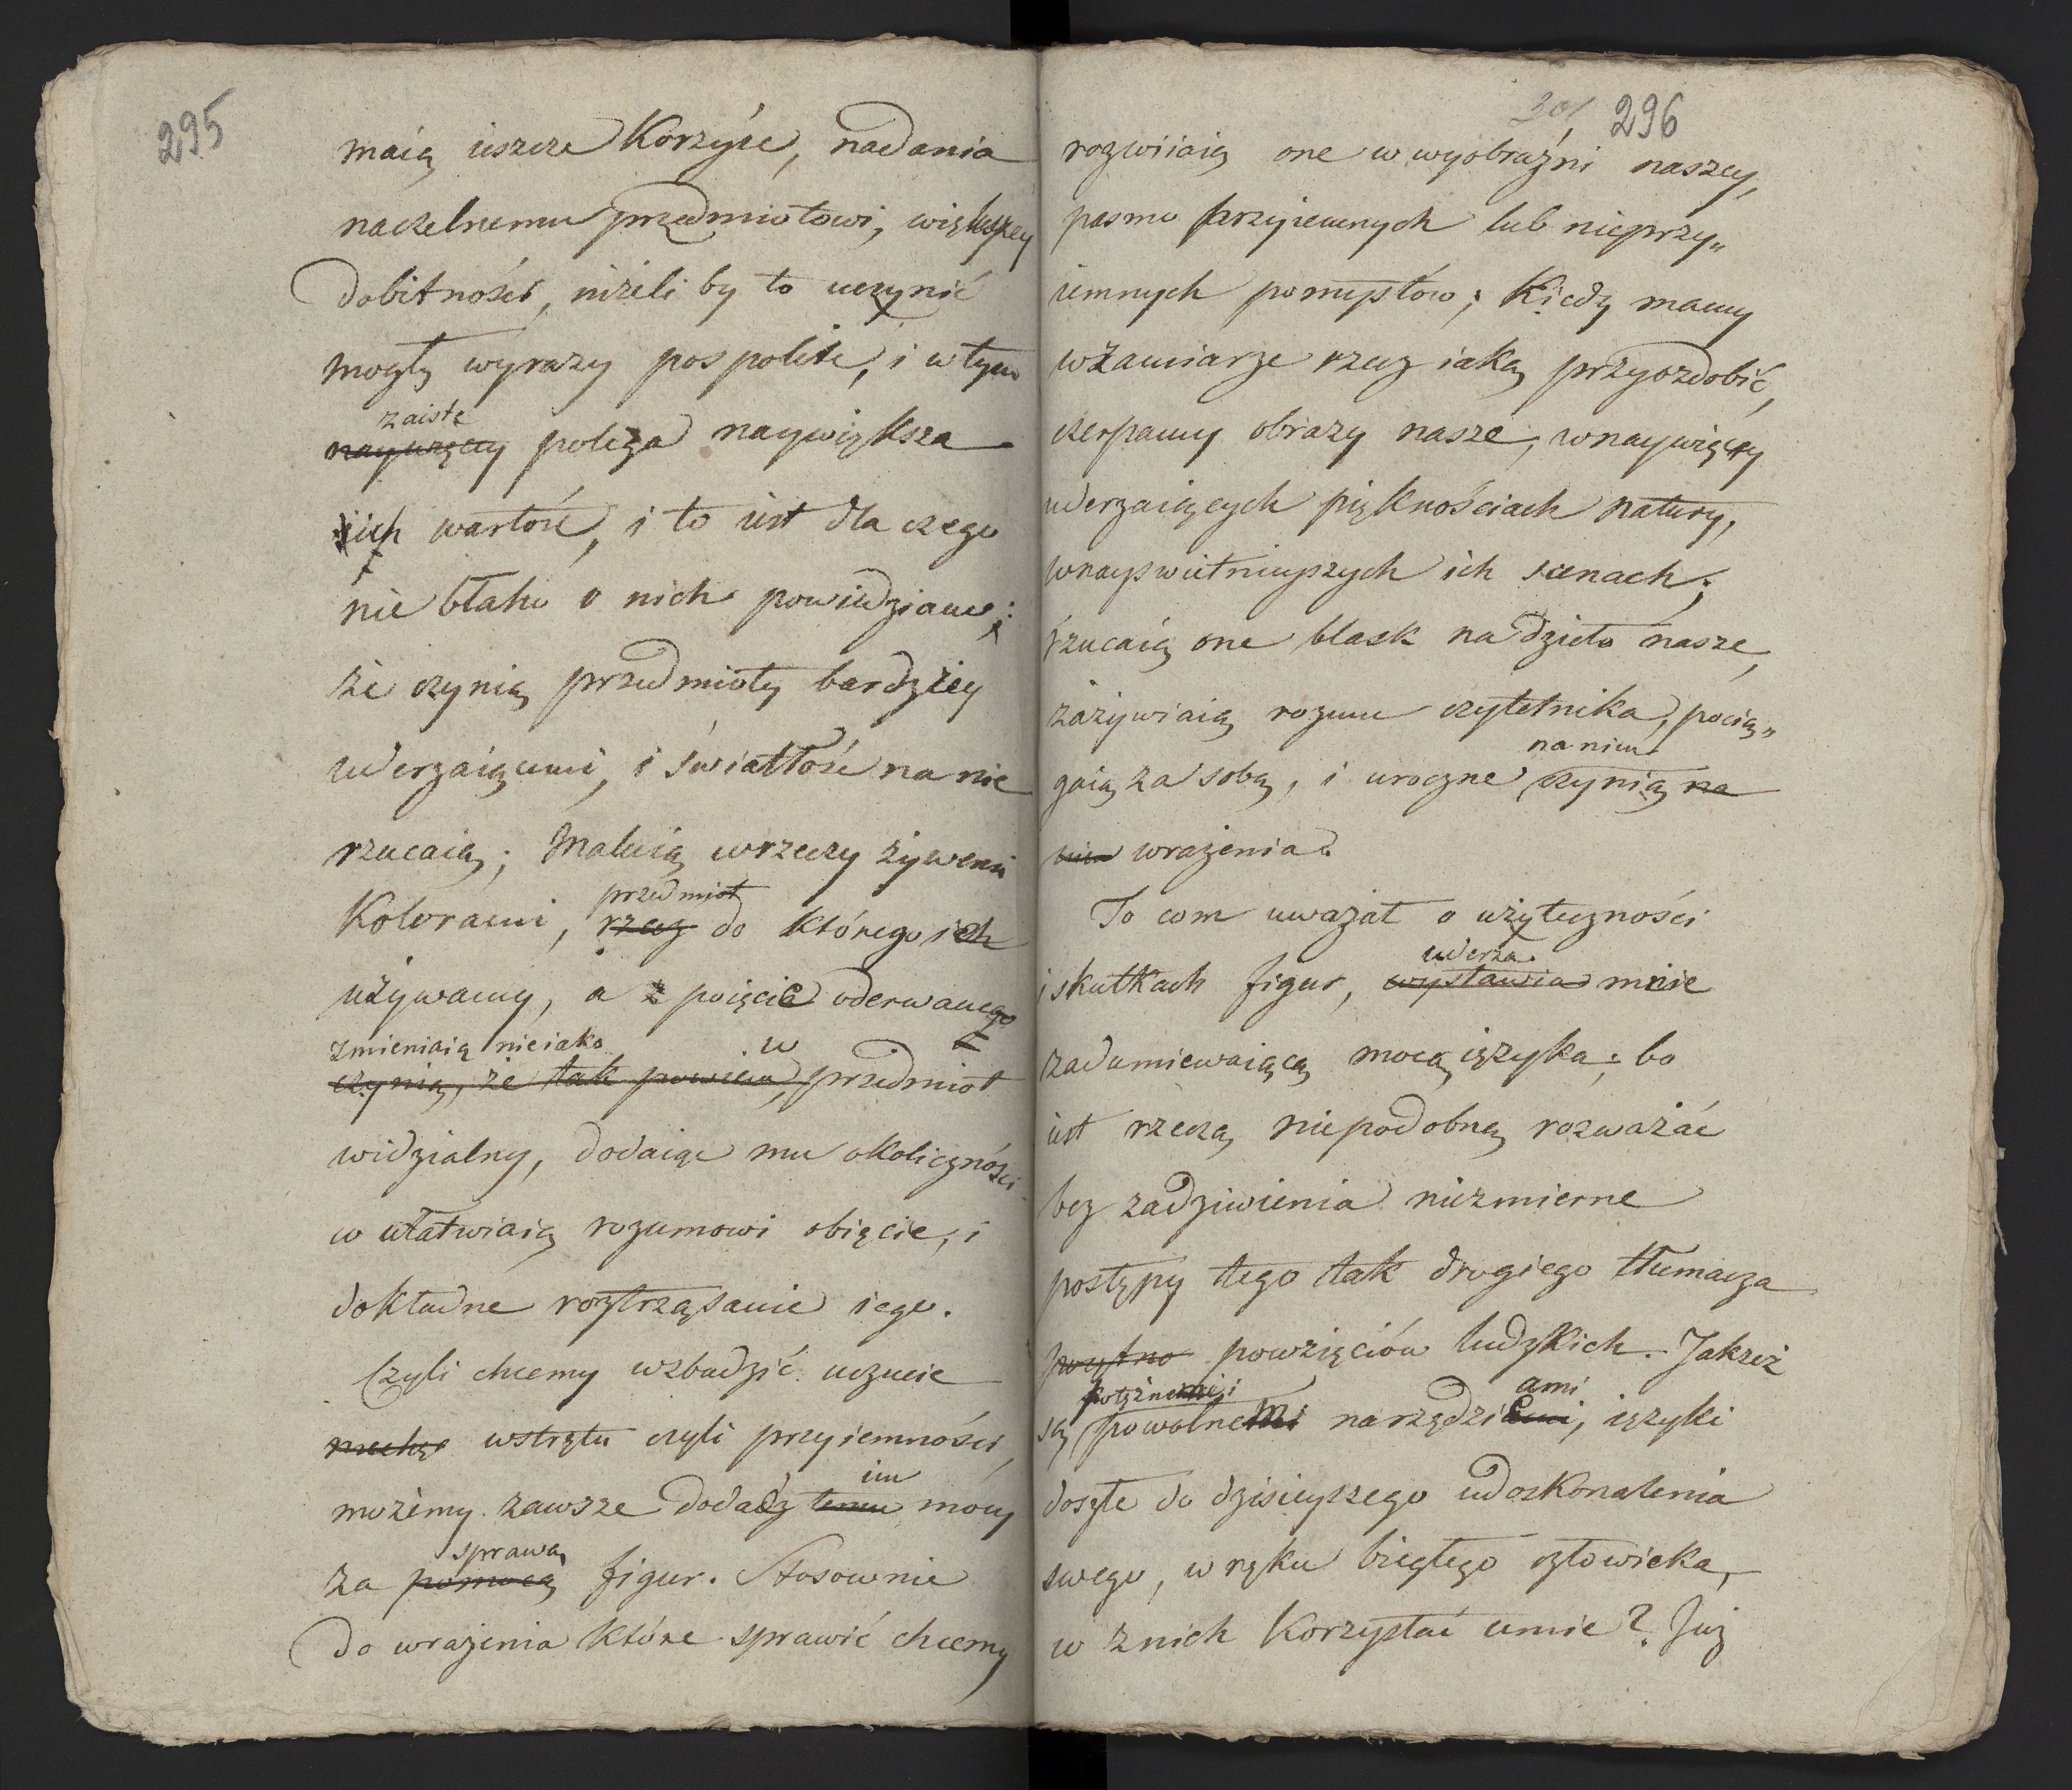 295
maią ieszcze Korzyść, nadania
naczelnemu przedmiotowi, większey
dobitności, niżeli by to uczynić
mogły wyrazy pospolite, i w tym
zaiste
naywięcey polega naywiększa
ich wartość, i to iest dla czego
nie błaho o nich powiedziano;
że czynią przedmioty bardziey
uderzaiącemi, i światłość na nie
rzucaią; Maluią w rzeczy żywemi
Kolorami, przedmiot
rzecz do którego ich
używamy, a z poięcia oderwanego
zmieniaią nieiako w
czynią, że tak powiem, przedmiot
widzialny, dodaiąc mu okoliczności
w ułatwiaią rozumowi obięcie, i
dokładne roztrząsanie iego.
Czyli chcemy wzbudzić uczucie
wstrętu czyli przyiemności,
im
możemy zawsze dodadz temu mocy
sprawą
za pomocą figur. Stosownie
do wrażenia które sprawić chcemy
301 296
rozwiiaią one w wyobraźni naszey,
pasmo przyiemnych lub nieprzy„
iemnych pomysłów; Kiedy mamy
w zamiarze rzecz iaką przyozdobić,
czerpamy obrazy nasze, w naywięcey
uderzaiących pięknościach natury,
w nayswietnieyszych ich scenach;
rzucaią one blask na dzieło nasze,
zażywiaią rozum czytelnika, pocią„
na nim
gaią za sobą, i uroczne czynią na
nim wrażenia.
To com uważał o użyteczności
uderza
i skutkach figur, wystawia mnie
zadumiewaiącą mocą ięzyka; bo
iest rzeczą niepodobną rozważać
bez zadziwienia niezmierne
postępy tego tak drogiego tłumacza
powzięciów ludzkich. Jakżeż
potężnemi i ami
są powolnemi narzędziami, ięzyki
doszłe do dzisieyszego udoskonalenia
swego, w ręku biegłego człowieka,
w z nich Korzystać umie? Już